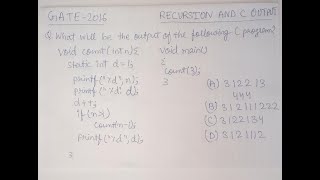 GATE-2016 RECURSION AND C OUTPUT
Q. What will be the output of the following C program?
void count(int n){ void main()
static int d=1; {
printf("%d",n); count(3);
printf("%d",d); }
d++;
if(n>1)
count(n-1);
printf("%d",d);
}
(A) 3 1 2 2 1 3
4 4 4
(B) 3 1 2 1 1 1 2 2 2
(C) 3 1 2 2 1 3 4
(D) 3 1 2 1 1 1 2